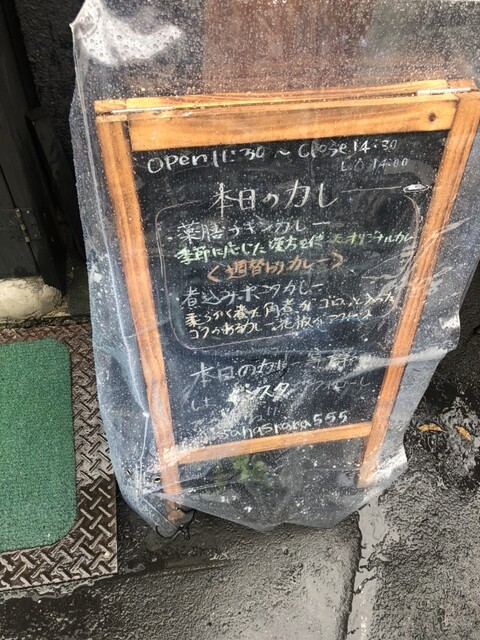 open 11:30 ～ Close 14:30
L.O 14:00
本日のカレー
・薬膳チキンカレー
季節に応じた漢方を使ったオリジナルカレー
＜週替わりカレー＞
・煮込みポークカレー
柔らかく煮た角煮がゴロッと入った
コクがあるカレー
本日のカレー
インスタ
sahasrara555